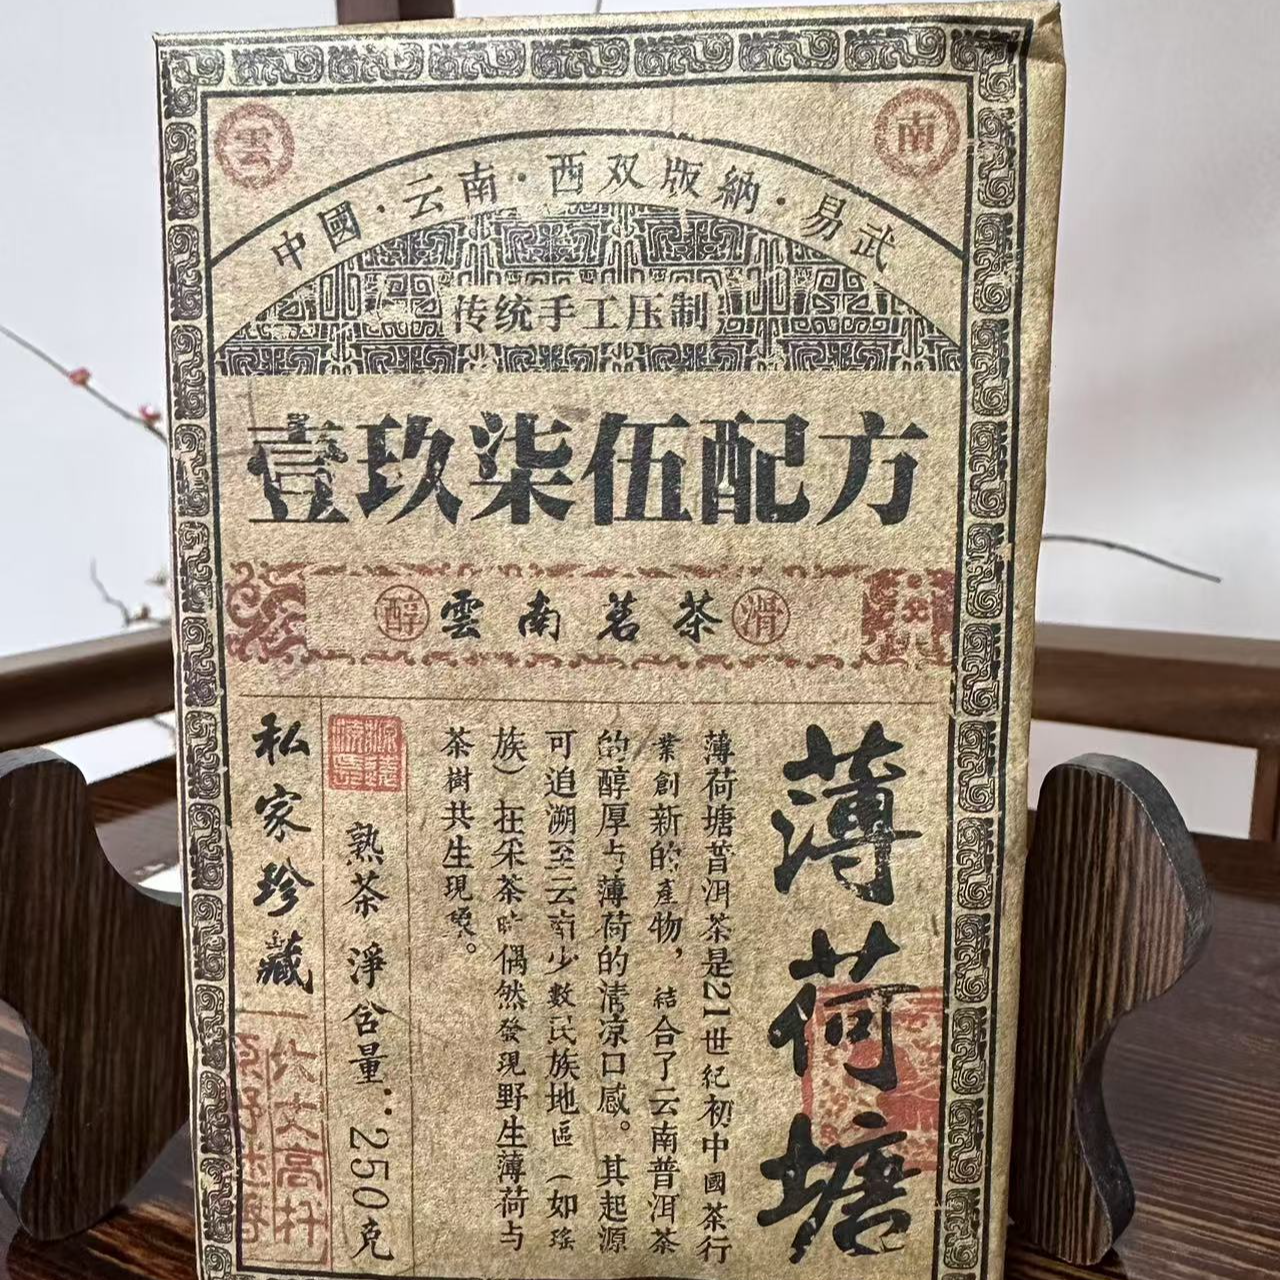 雲
南
中國·云南·西双版納·易武
传统手工压制
壹玖柒伍配方
醇 雲南茗茶 滑
薄荷塘
薄荷塘普洱茶是21世纪初中國茶行
業創新的產物，結合了云南普洱茶
的醇厚与薄荷的清凉口感。其起源
可追溯至云南少數民族地區（如瑤
族）在采茶時偶然發現野生薄荷与
茶樹共生現象。
熟茶 淨含量：250克
私家珍藏